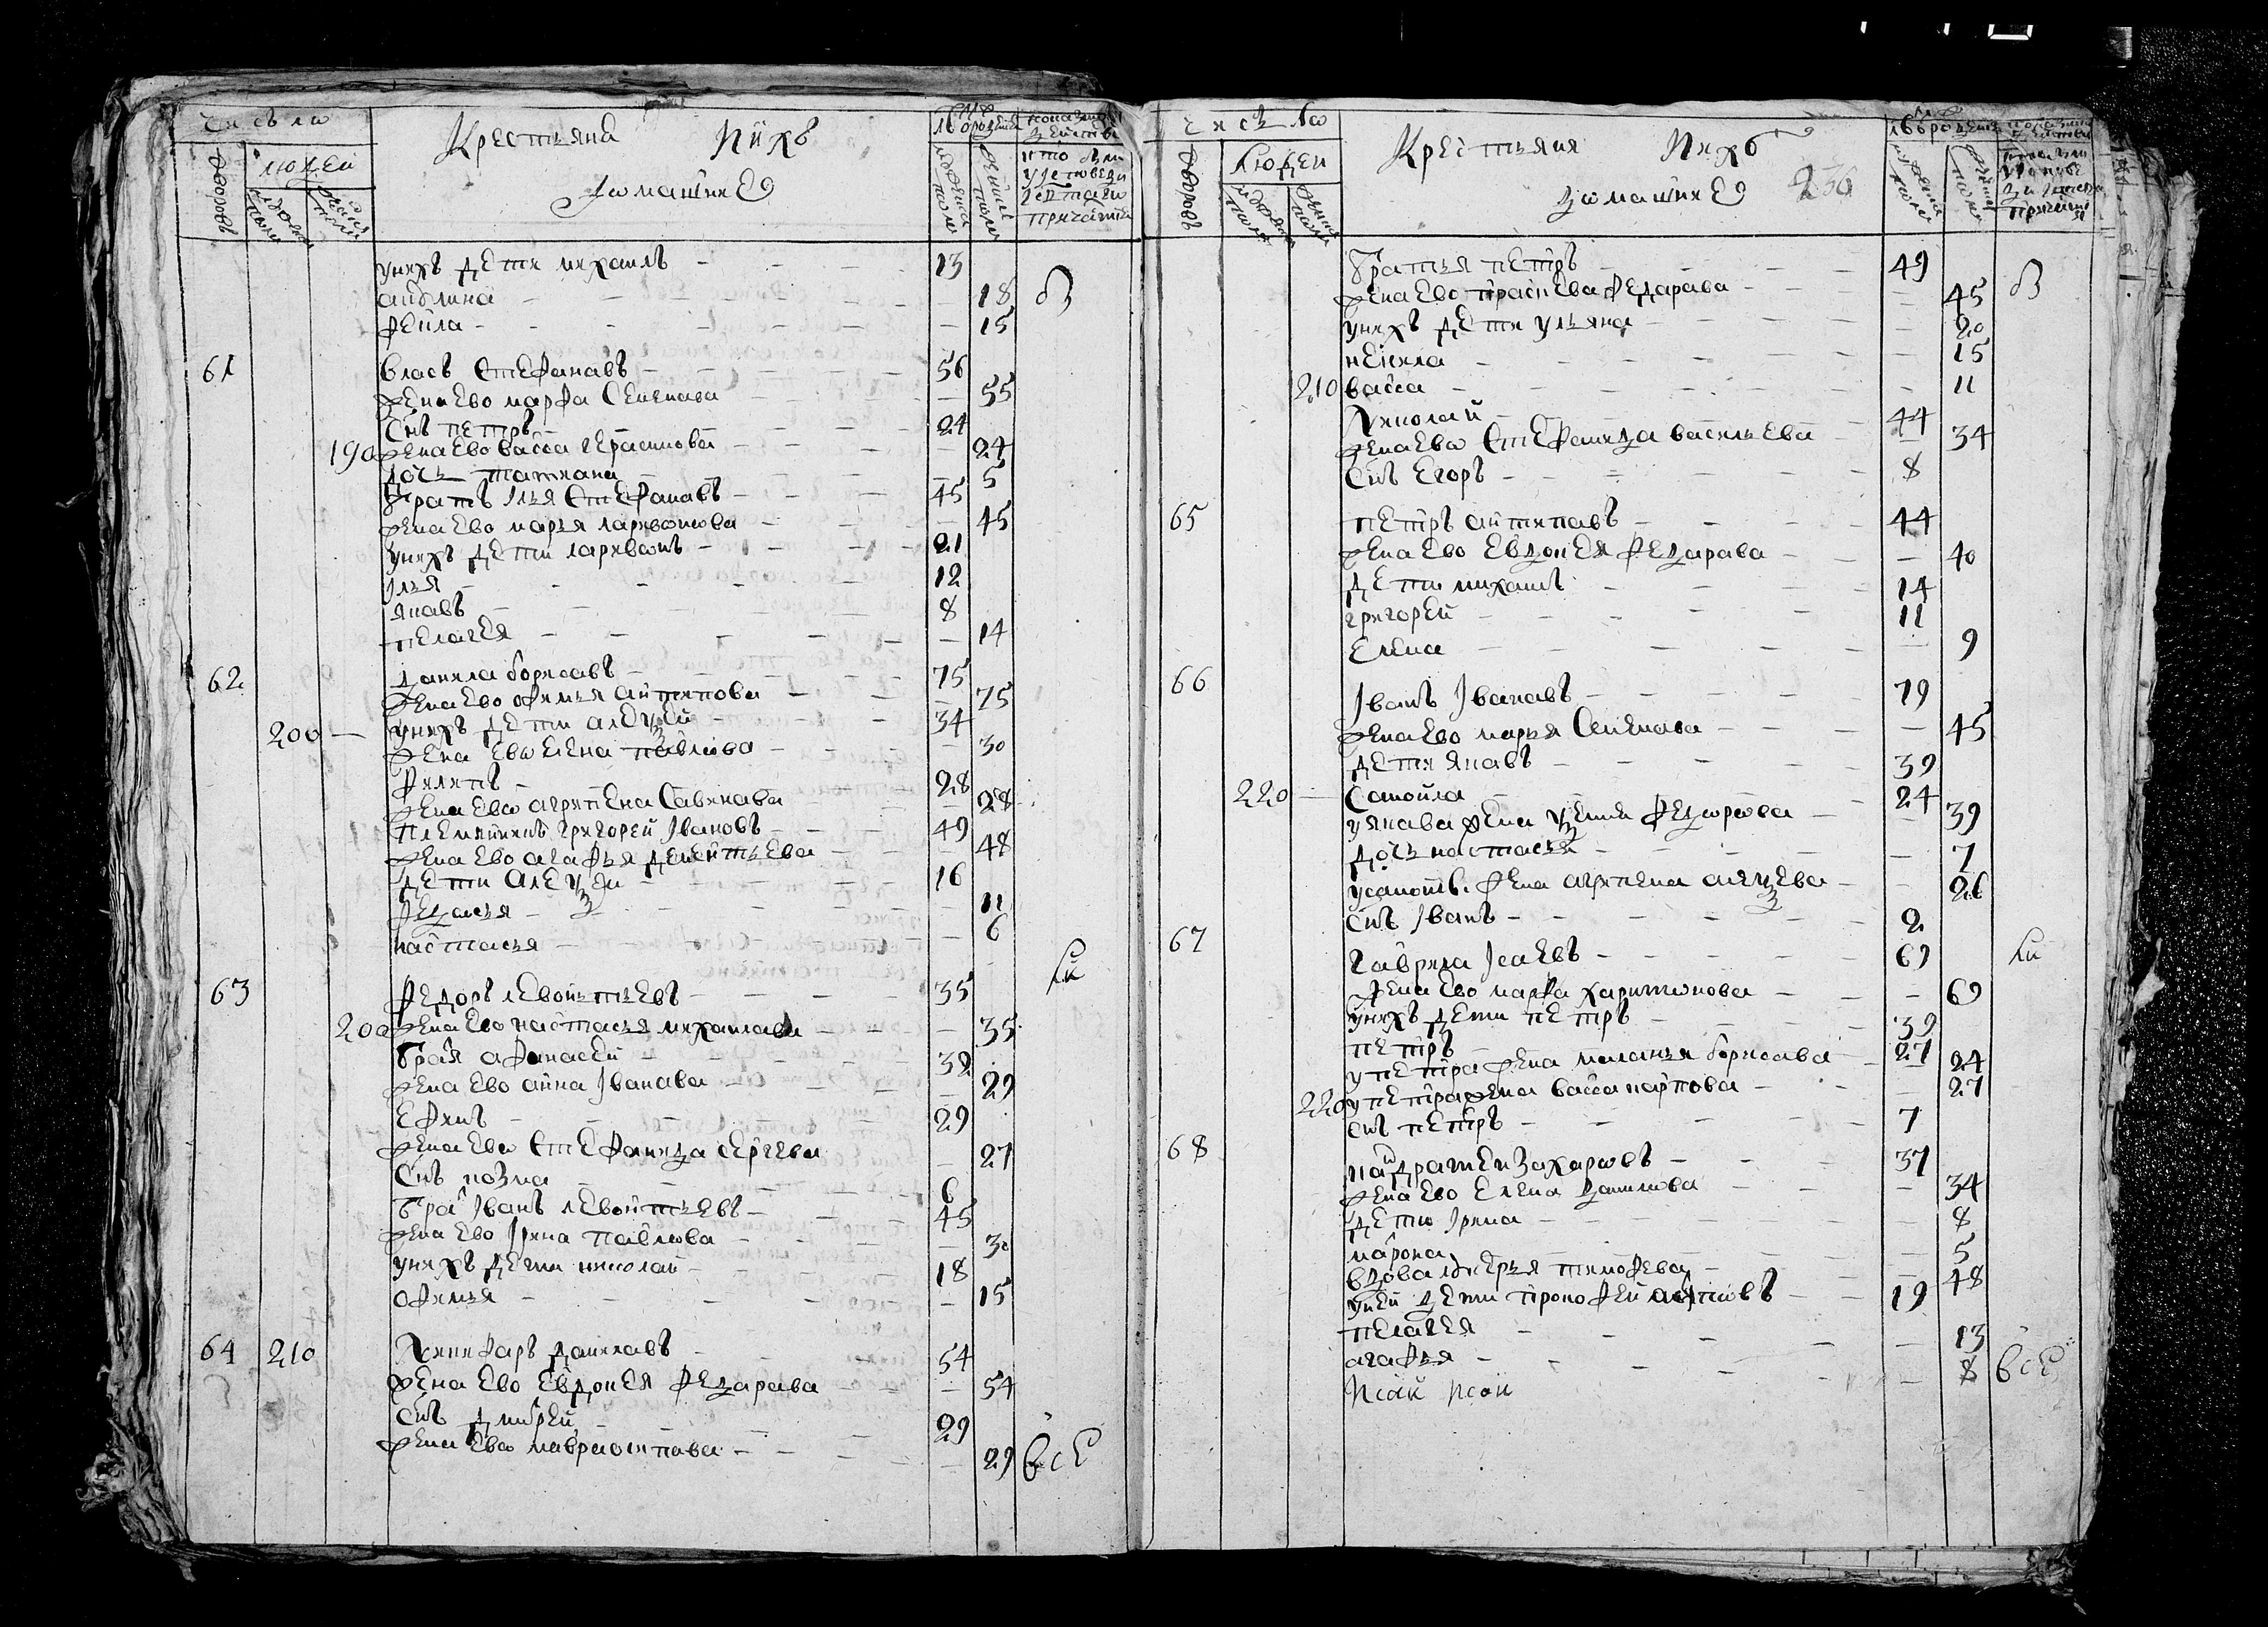 Число
Крестьяна Ихъ
домашние
дворовъ
людей
мужеска полу
женска полу
лѣта отрождения
мужеска полу
женска полу
унихъ дети михаилъ 13
акулина 18
фекла 15
61 власъ стефанавъ 56
жена ево марфа семенава 55
снъ петръ 24
190 жена ево васса герасимова 24
дочь татиана 5
братъ Илья стефанавъ 45
жена ево марья ларивонова 45
унихъ дети ларивонъ 21
Илья 12
яковъ 8
пелагея 14
62 данила борисавъ 75
жена ево офимья антипова 75
200 унихъ дети алеѯей 34
жена ево елена павлова 30
филипъ 28
жена ево агрипена савинава 28
племянникъ григорей Ивановъ 49
жена ево агафья дементьева 48
дети алеѯей 16
федосья 11
настасья 6
63 федоръ левонтьевъ 35
200 жена ево настасья михаилава 35
братъ афанасей 32
жена ево анна Іванава 29
ефимъ 29
жена ево стефанида сергева 27
снъ козма 6
братъ Іванъ левонтьевъ 45
жена ево Ірина павлова 30
унихъ дети николай 18
офимья 15
64 210 никифаръ данилавъ 54
жена ево евдокея федарава 54
снъ дмитрей 29
жена ево мавра осипава 29
въ
ли
всѣ
Число
Крестьяня Ихъ
домашние 236
дворовъ
людей
мужеска полу
женска полу
братья петръ 49
жена ево прасковя федарава 45
унихъ дети ульяна 20
текла 15
210 васса 11
николай 44
жена ево стефанида васильева 34
снъ егоръ 8
65 петръ антипавъ 44
жена ево евдокея федарава 40
дети михаилъ 14
григорей 11
елена 9
66 Іванъ Іванавъ 79
жена ево марья семенава 45
дети яковъ 39
220 самойла 24
уякава жена ѯения федорова 39
дочь настасья 7
усамойлы жена агрипена алеѯева 26
снъ Іванъ 2
67 гаврила Ісаевъ 69
жена ево марфа харитонова 69
унихъ дети петръ 39
петръ 27
упетра жена маланья борисава 24
220 упетра жена васса карпова 27
снъ петръ 7
68 кандратей захаровъ 37
жена ево елена данилова 34
дети Ірина 8
матрона 5
вдова лукерья тимофева 48
уней дети прокофей 19
пелагея 13
агафья 8
въ
ли
всѣ